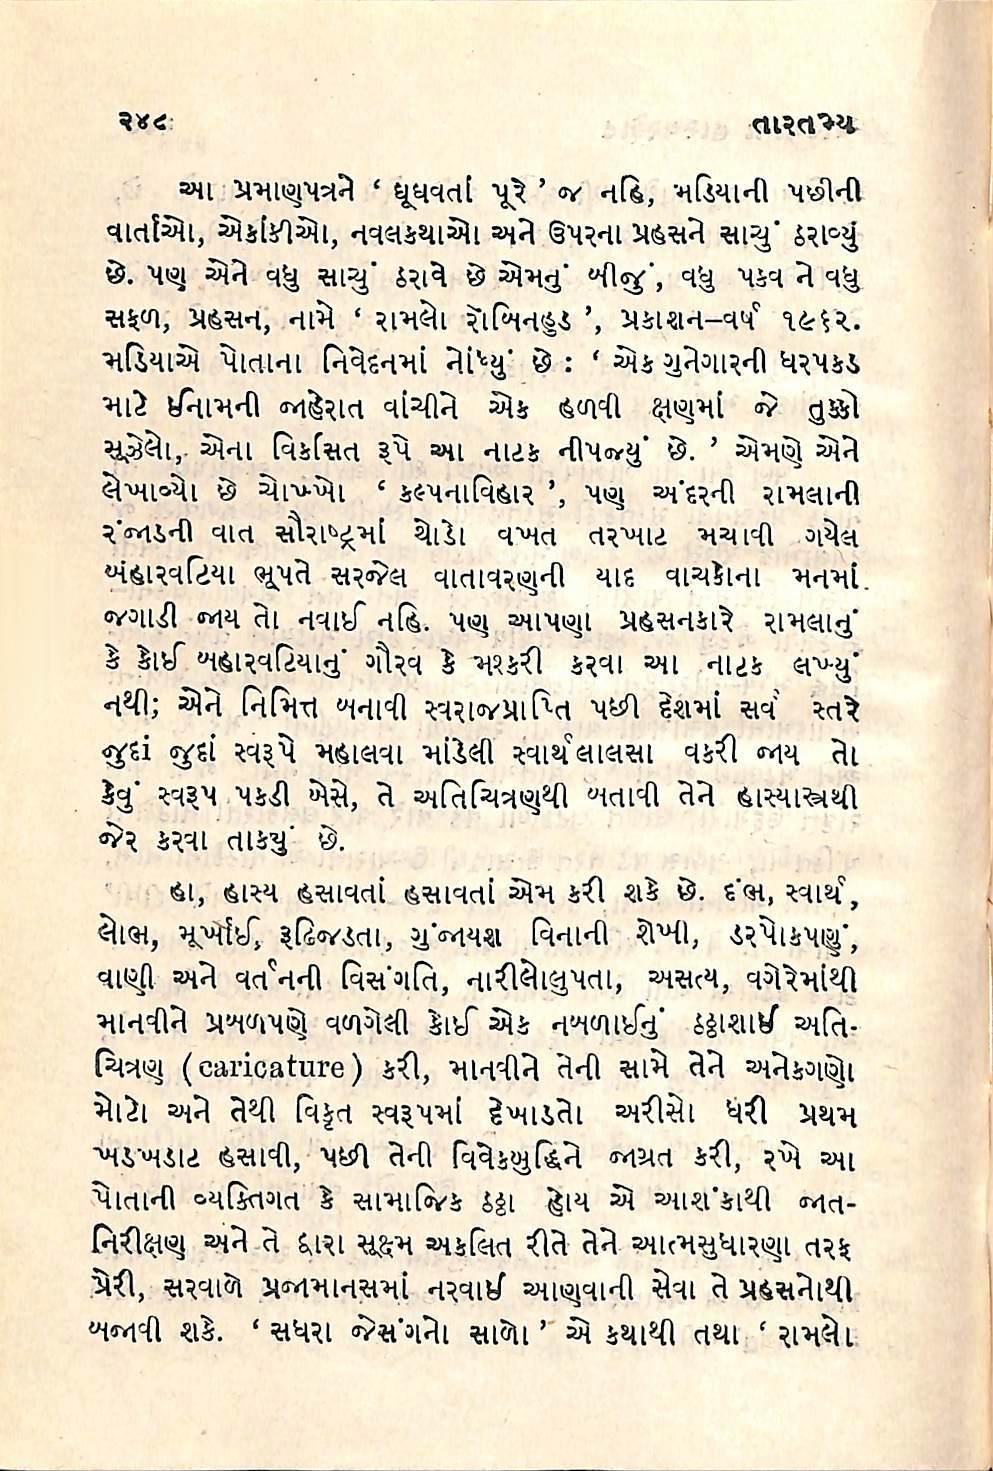 ૨૪૮
તારતમ્ય
આ પ્રમાણપત્રને ‘ ઘૂઘવતાં પૂરે ’ જ નહિ, મડિયાની પછીની
વાર્તાઓ, એકાંકીઓ, નવલકથાઓ અને ઉપરના પ્રહસને સાચું ઠરાવ્યું
છે. પણ એને વધુ સાચું ઠરાવે છે એમનું બીજું, વધુ પકવ ને વધુ
સફળ, પ્રહસન, નામે ‘ રામલો રૉબિનહુડ ’, પ્રકાશન–વર્ષ ૧૯૬૨.
મડિયાએ પોતાના નિવેદનમાં નોંધ્યું છે : ‘ એક ગુનેગારની ધરપકડ
માટે ઈનામની જાહેરાત વાંચીને એક હળવી ક્ષણમાં જે તુક્કો
સૂઝેલો, એના વિકસિત રૂપે આ નાટક નીપજ્યું છે. ’ એમણે એને
લેખાવ્યો છે ચોખ્ખો ‘ કલ્પનાવિહાર ’, પણ અંદરની રામલાની
રંજાડની વાત સૌરાષ્ટ્રમાં થોડો વખત તરખાટ મચાવી ગયેલ
બંહારવટિયા ભૂપતે સરજેલ વાતાવરણની યાદ વાચકોના મનમાં
જગાડી જાય તો નવાઈ નહિ. પણ આપણા પ્રહસનકારે રામલાનું
કે કોઈ બહારવટિયાનું ગૌરવ કે મશ્કરી કરવા આ નાટક લખ્યું
નથી; એને નિમિત્ત બનાવી સ્વરાજપ્રાપ્તિ પછી દેશમાં સર્વ સ્તરે
જુદાં જુદાં સ્વરૂપે મહાલવા માંડેલી સ્વાર્થલાલસા વકરી જાય તો
કેવું સ્વરૂપ પકડી બેસે, તે અતિચિત્રણથી બતાવી તેને હાસ્યાસ્ત્રથી
જેર કરવા તાકયું છે.
હા, હાસ્ય હસાવતાં હસાવતાં એમ કરી શકે છે. દંભ, સ્વાર્થ,
લોભ, મૂર્ખાઈ, રૂઢિજડતા, ગુંજાયશ વિનાની શેખી, ડરપોકપણું,
વાણી અને વર્તનની વિસંગતિ, નારીલોલુપતા, અસત્ય, વગેરેમાંથી
માનવીને પ્રબળપણે વળગેલી કોઈ એક નબળાઈનું ઠઠ્ઠાશાઈ અતિ-
ચિત્રણ (caricature) કરી, માનવીને તેની સામે તેને અનેકગણો
મોટો અને તેથી વિકૃત સ્વરૂપમાં દેખાડતો અરીસો ધરી પ્રથમ
ખડખડાટ હસાવી, પછી તેની વિવેકબુદ્ધિને જાગ્રત કરી, રખે આ
પોતાની વ્યક્તિગત કે સામાજિક ઠઠ્ઠા હોય એ આશંકાથી જાત-
નિરીક્ષણ અને તે દ્વારા સૂક્ષ્મ અકલિત રીતે તેને આત્મસુધારણા તરફ
પ્રેરી, સરવાળે પ્રજામાનસમાં નરવાઈ આણવાની સેવા તે પ્રહસનોથી
બજાવી શકે. ‘ સધરા જેસંગનો સાળો ’ એ કથાથી તથા ‘ રામલો